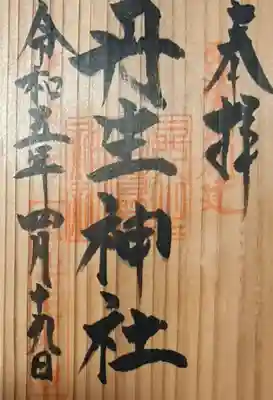 奉拝
丹生神社
令和五年四月十九日